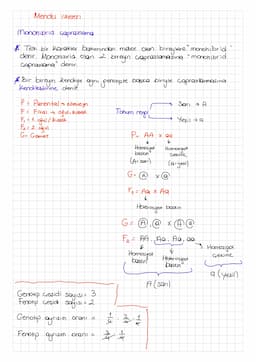 Mendel Yasası
Monohibrid çaprazlama
Tek bir karakter bakımından melez olan bireylere "monohibrid"
denir. Monohibrid olan 2 bireyin çaprazlanmasına "monohibrid
çaprazlama" denir.
Bir bireyin kendisiyle aynı genotipte başka bireyle çaprazlanmasına
denir.
P = Parental =
F =
F₁ = 1.
F₂ = 2.
G = Gamet
Tohum rengi
Sarı → A
Yeşil → a
P = AA x aa
Homozigot baskın
(A = sarı)
Homozigot çekinik
(a = yeşil)
G = A x a
F₁ = Aa x Aa
Heterozigot baskın
G = A, a x A a
F₂ = AA, Aa, Aa, aa
Homozigot baskın
Heterozigot baskın
Homozigot çekinik
A (sarı)
a (yeşil)
Genotip çeşidi sayısı = 3
Fenotip çeşidi sayısı = 2
Genotip ayrışım oranı =
Fenotip ayrışım oranı =